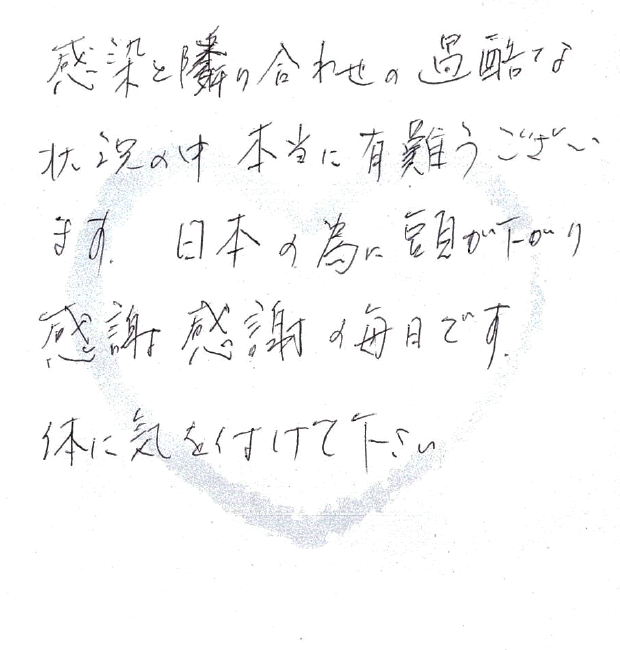 感染と隣り合わせの過酷な
状況の中 本当に有難うござい
ます。 日本の為に頭が下がり
感謝感謝の毎日です。
体に気を付けて下さい